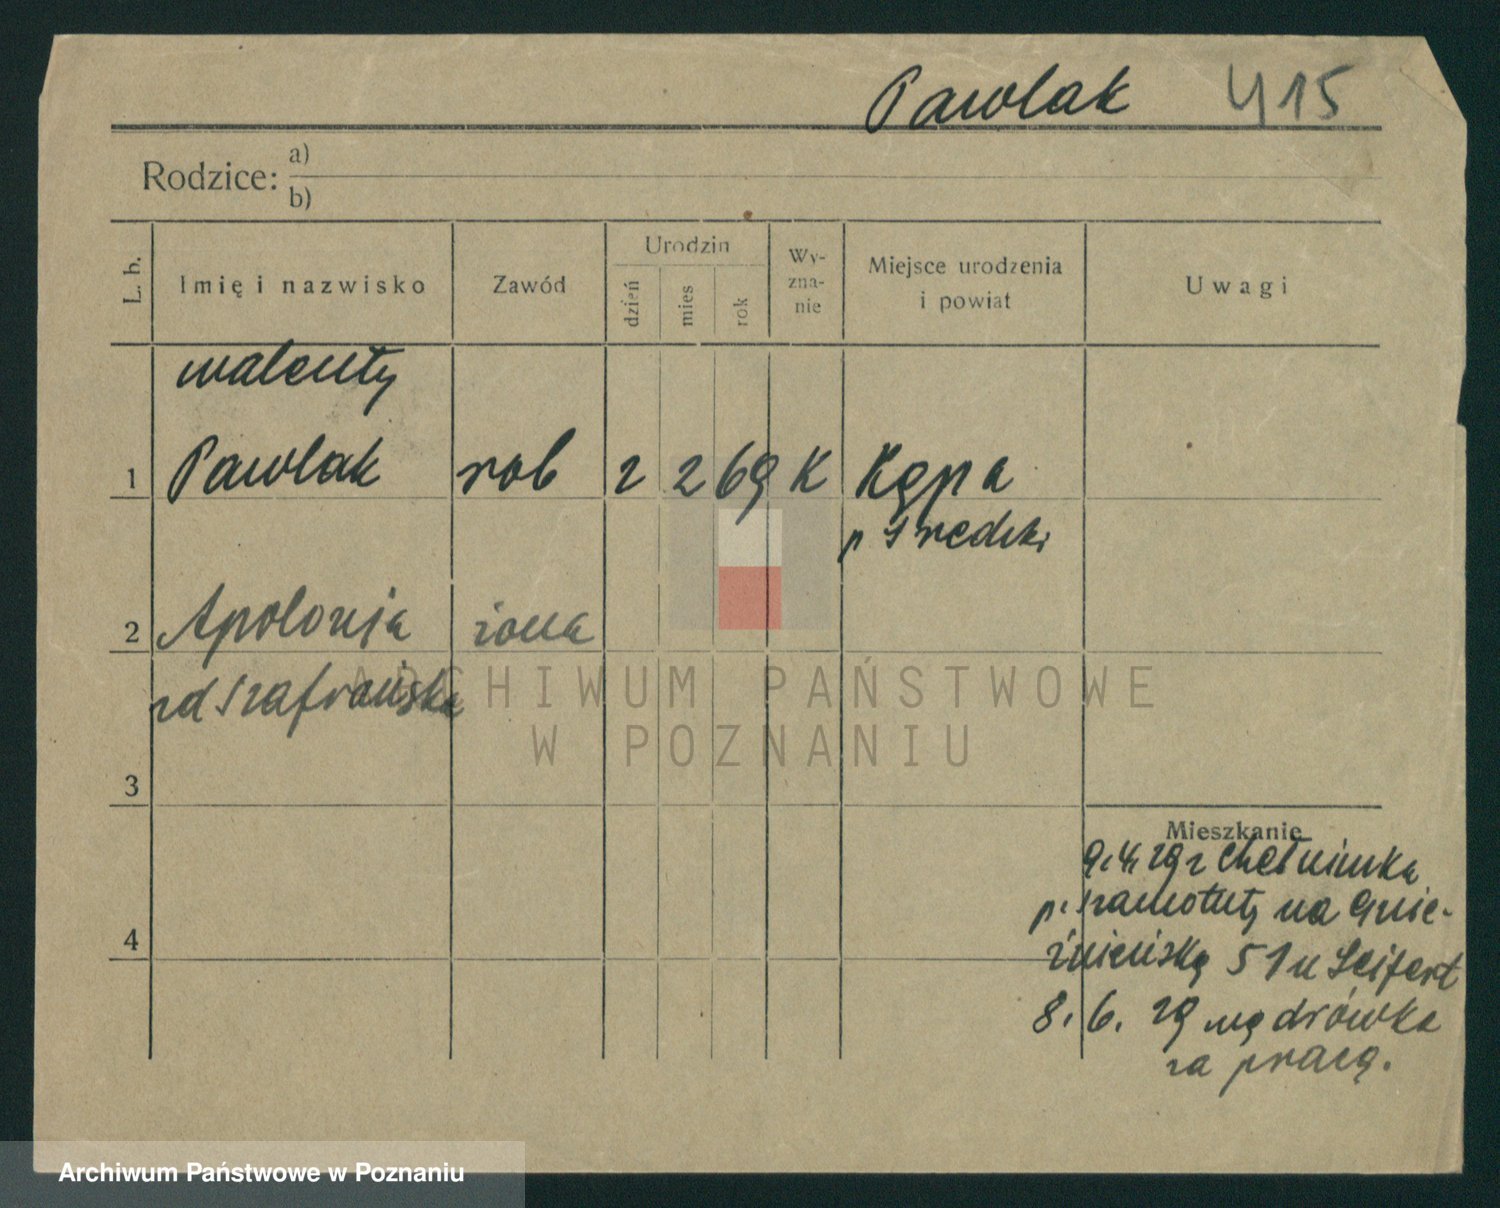 Pawlak 415
Rodzice: a)
b)
L. b. Imię i nazwisko Zawód Urodzin dzień mies rok Wy-zna-nie Miejsce urodzenia i powiat Uwagi
walenty
1 Pawlak rob 2 2 69 K Kępa
p Sredzki
2 Apolonia żona
zd Szafrańska
ARCHIWUM PAŃSTWOWE
W POZNANIU
3
Mieszkanie
9.4.29 z Chełminka
p. Szamotuły na Gnie-
4
źnieńską 51 u Seifert
8.6.29 wędrówka
za pracą.
Archiwum Państwowe w Poznaniu